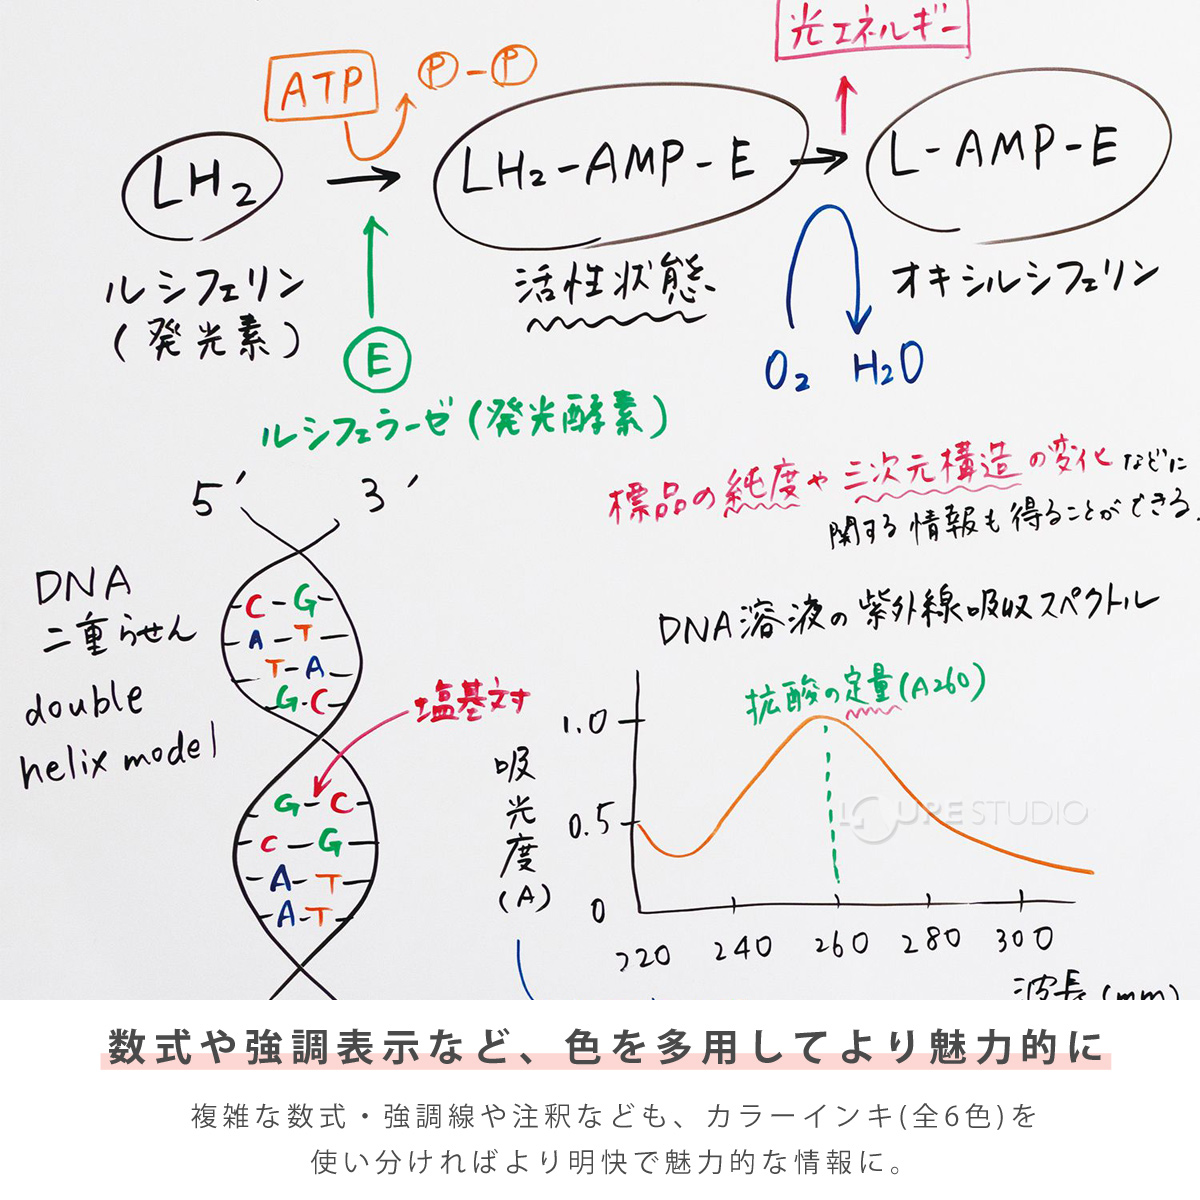 光エネルギー
ATP
P-P
LH2
LH2-AMP-E
L-AMP-E
ルシフェリン
(発光素)
活性状態
オキシルシフェリン
E
O2 H2O
ルシフェラーゼ(発光酵素)
標品の純度や三次元構造の変化などに
関する情報も得ることができる.
5' 3'
DNA
二重らせん
double
helix model
C-G
A-T
T-A
G-C
塩基対
G-C
C-G
A-T
A-T
DNA溶液の紫外線吸収スペクトル
抗酸の定量(A260)
吸光度(A)
1.0
0.5
0
220 240 260 280 300
波長(mm)
LOUPE STUDIO
数式や強調表示など、色を多用してより魅力的に
複雑な数式・強調線や注釈なども、カラーインキ(全6色)を
使い分ければより明快で魅力的な情報に。